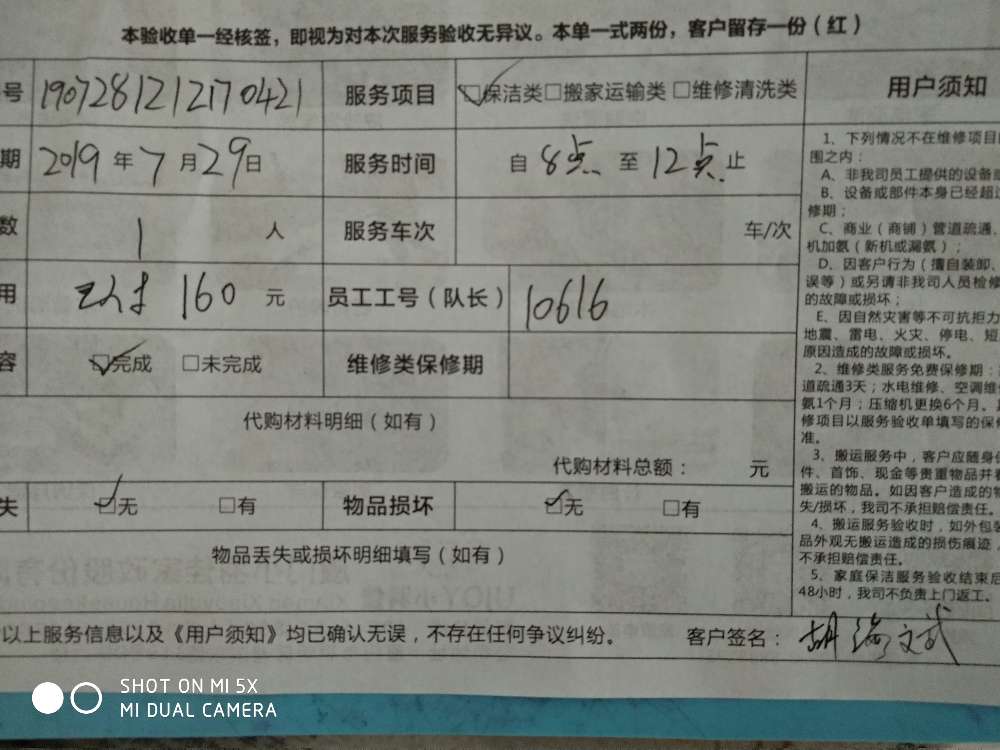 本验收单一经核签，即视为对本次服务验收无异议。本单一式两份，客户留存一份（红）
号 1907281212170421 服务项目 ☑保洁类□搬家运输类 □维修清洗类 用户须知
期 2019 年 7 月 29 日 服务时间 自 8点 至 12点 止
数 1 人 服务车次 车/次
用 160 元 员工工号（队长） 10616
容 ☑完成 □未完成 维修类保修期
代购材料明细（如有）
代购材料总额： 元
失 ☑无 □有 物品损坏 ☑无 □有
物品丢失或损坏明细填写（如有）
以上服务信息以及《用户须知》均已确认无误，不存在任何争议纠纷。 客户签名：
1、下列情况不在维修项目
围之内：
A、非我司员工提供的设备
B、设备或部件本身已经超过
修期；
C、商业（商铺）管道疏通、
机加氨（新机或漏氨）；
D、因客户行为（擅自装卸、
误等）或另请非我司人员检修
的故障或损坏；
E、因自然灾害等不可抗拒力
地震、雷电、火灾、停电、短
原因造成的故障或损坏。
2、维修类服务免费保修期：
道疏通3天；水电维修、空调维
氨1个月；压缩机更换6个月。
修项目以服务验收单填写的保修
准。
3、搬运服务中，客户应随身
件、首饰、现金等贵重物品并
搬运的物品。如因客户造成的
失/损坏，我司不承担赔偿责任。
4、搬运服务验收时，如外包装
品外观无搬运造成的损伤痕迹，
不承担赔偿责任。
5、家庭保洁服务验收结束后
48小时，我司不负责上门返工。
SHOT ON MI 5X
MI DUAL CAMERA